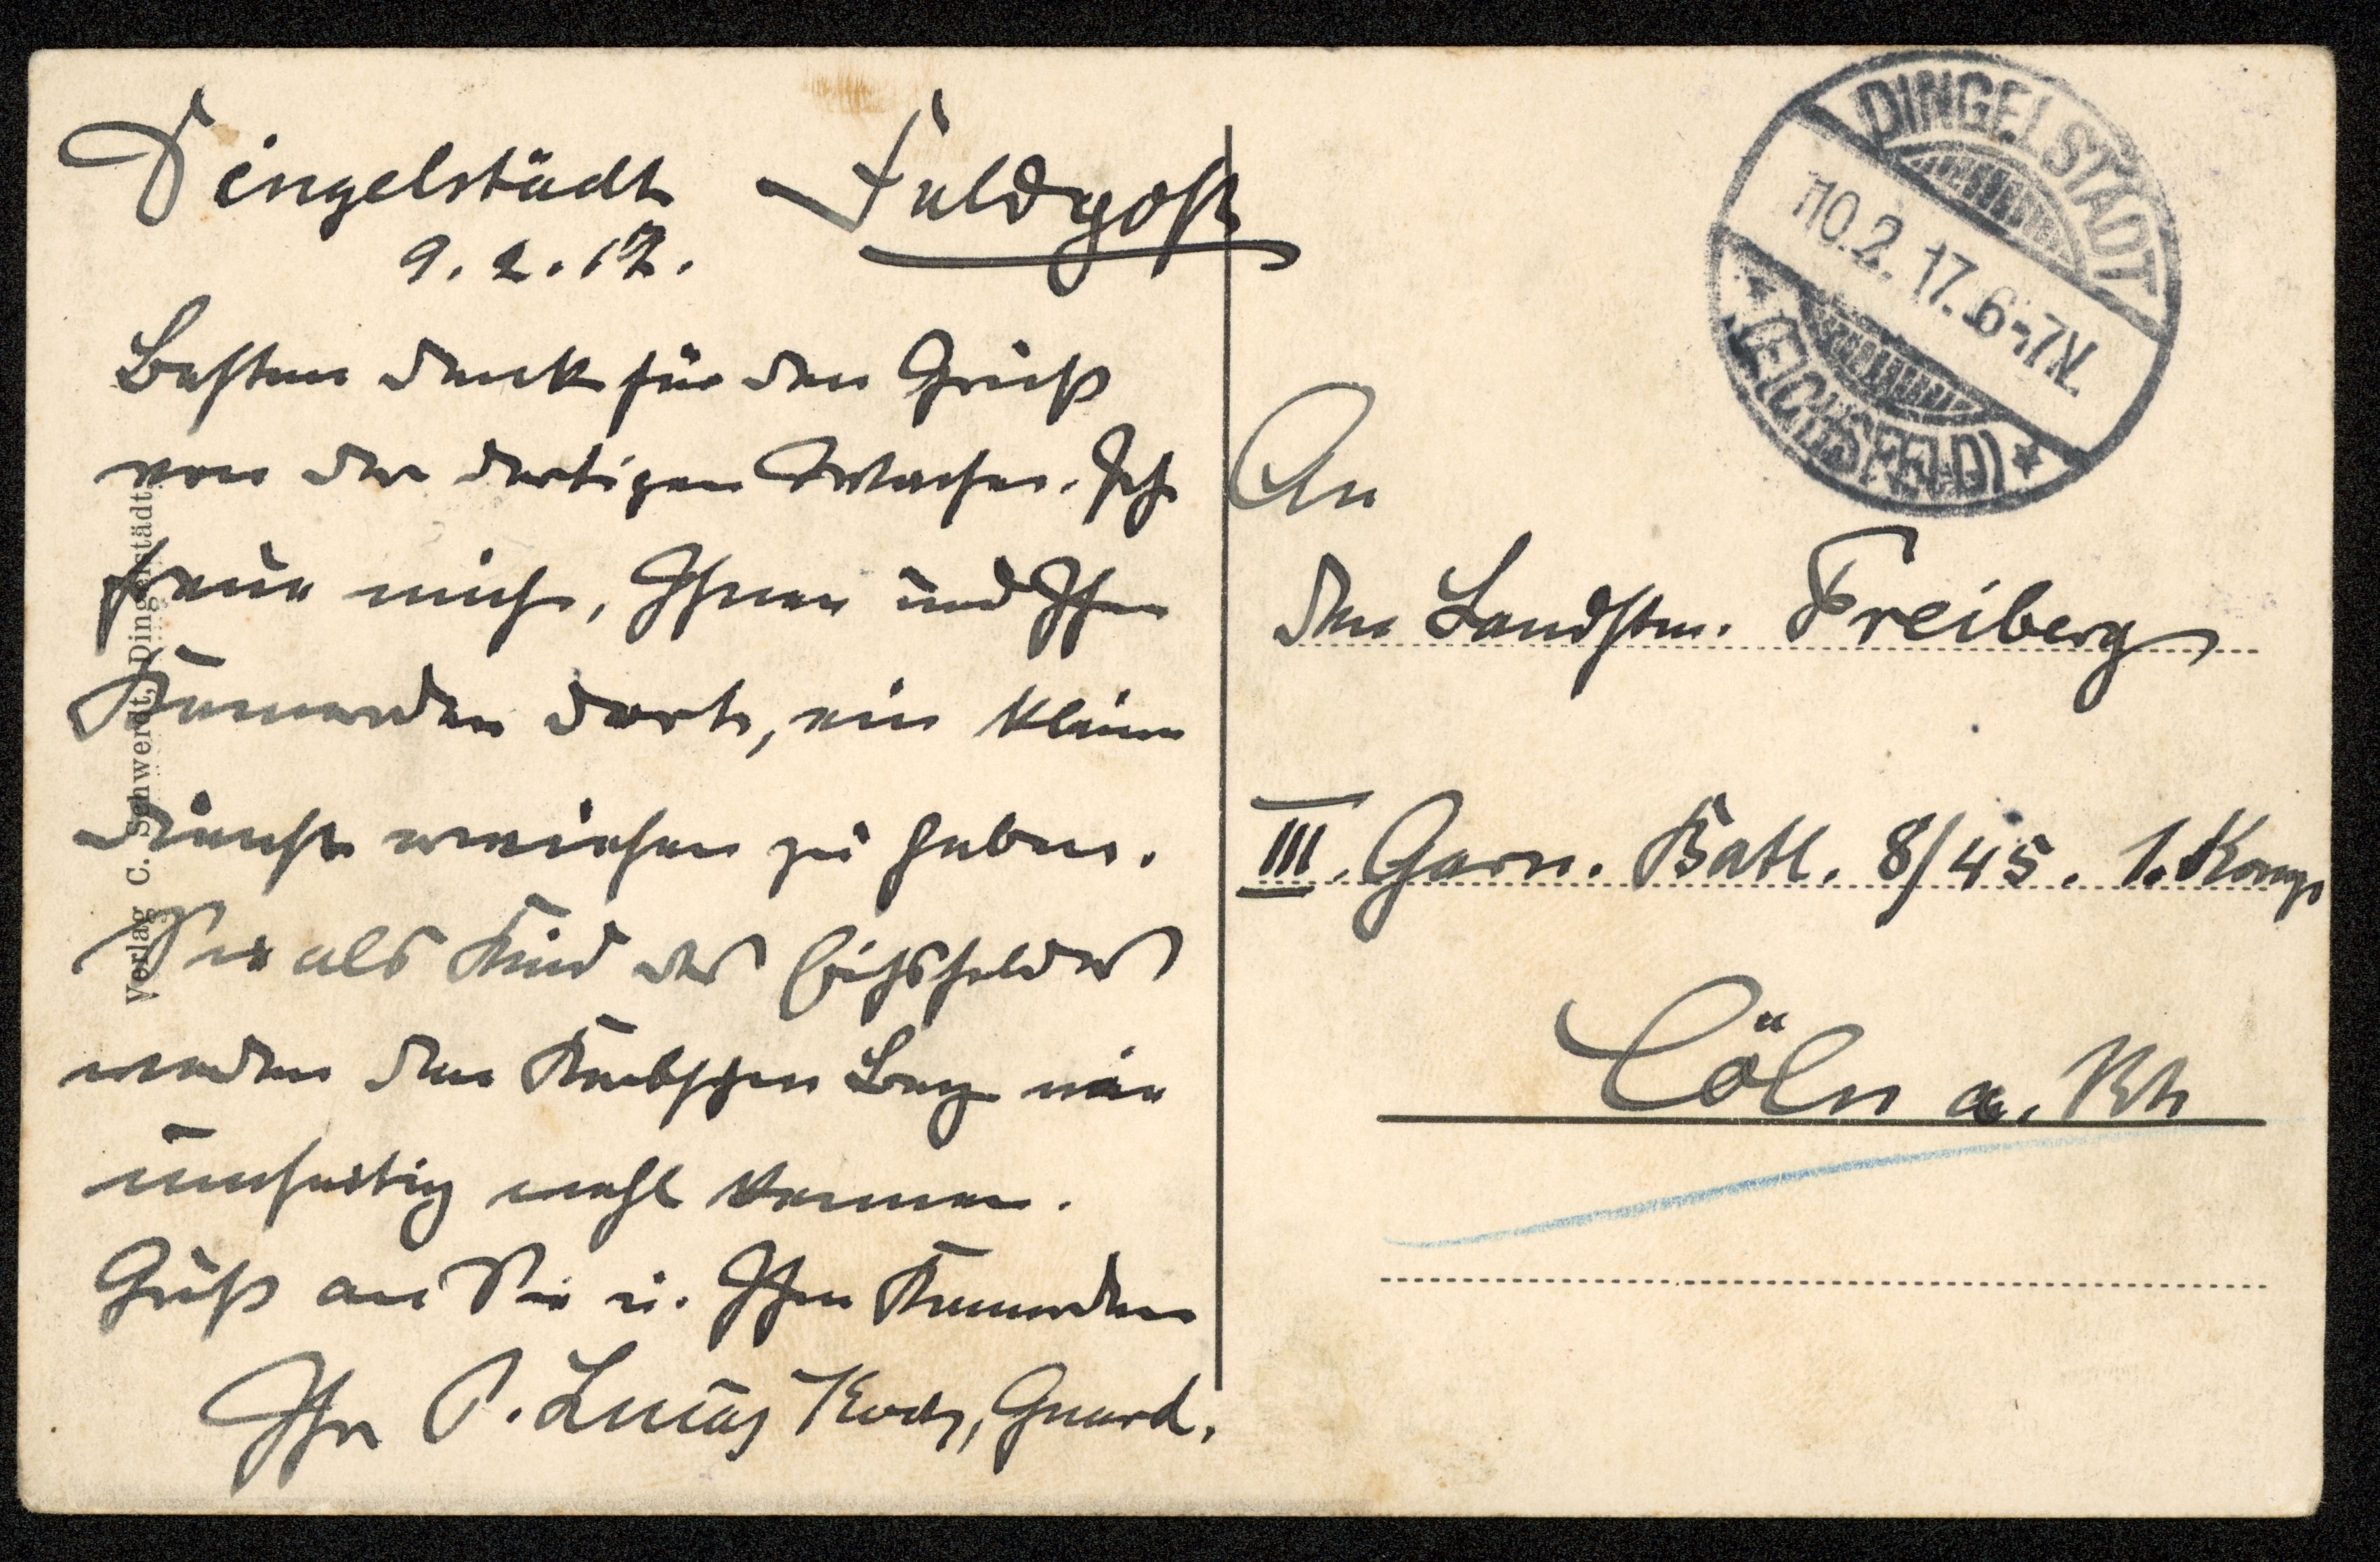 Dingelstädt Feldpost
9.2.17.
Besten Dank für den Gruß
von der dortigen Wache. Ich
freue mich, Ihnen und Ihren
Kameraden dort, ein kleinen
Dienst erwiesen zu haben.
Sie als Kind des Eichsfeldes
werden den Kerbschen Berg
wohl kennen.
Gruß an Sie u. Ihren Kameraden
Ihr P. Lucas Koch, Guard.
Verlag C. Schwerdt, Dingelstädt.
DINGELSTÄDT
*10.2.17.6-7N.
* (EICHSFELD) *
An
den Landstm. Freiberg
III. Garn. Batl. 8/45. 1. Komp
Cöln a. Rh